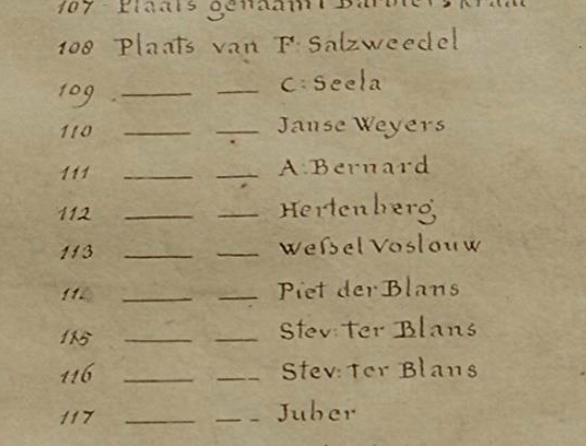 107 Plaats genaamt Barbiers kraal
108 Plaats van F: Salzweedel
109 — — C: Seela
110 — — Janse Weyers
111 — — A: Bernard
112 — — Hertenberg
113 — — Weſsel Voslouw
11 — — Piet der Blans
115 — — Stev: Ter Blans
116 — — Stev: Ter Blans
117 — — Juber